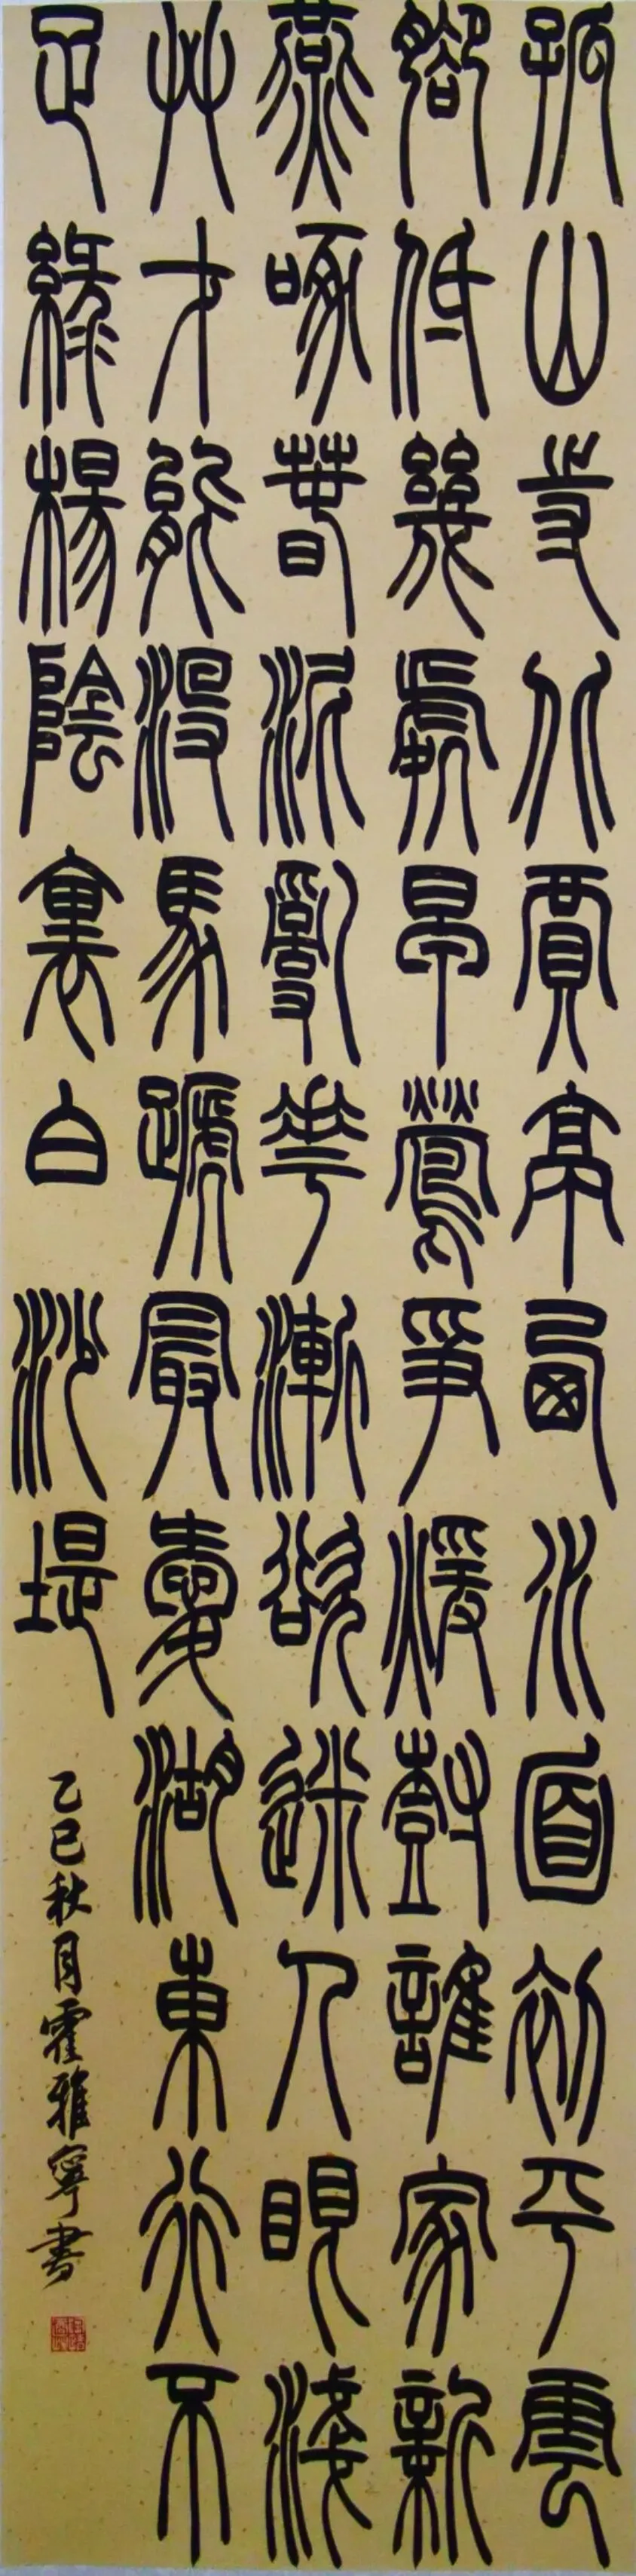 孤山寺北賈亭西水面初平雲
腳低幾處早鶯爭暖樹誰家新
燕啄春泥亂花漸欲迷人眼淺
艸才能沒馬蹏最愛湖東行不
足綠楊陰裏白沙堤
乙巳秋月霍雅寧書